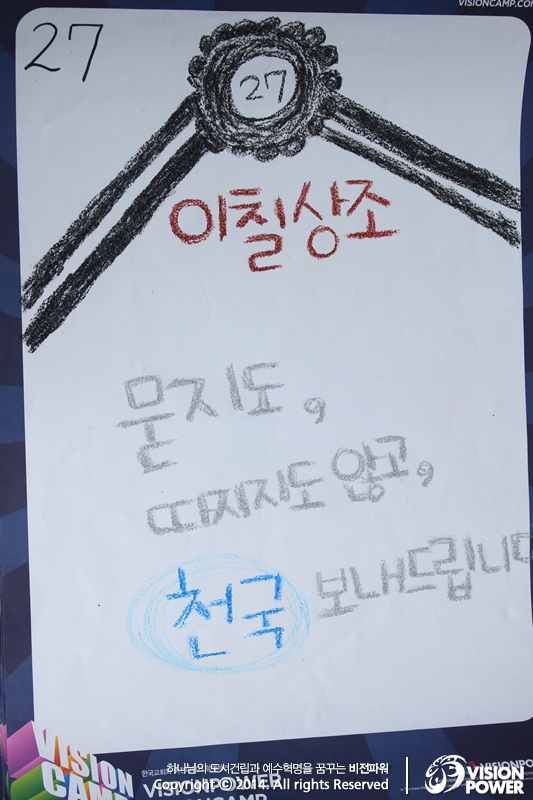 VISIONCAMP.COM
27
27
이칠상조
묻지도,
따지지도 않고,
천국 보내드립니다
VISION
CAMP
한국교회
VISIONPOWER
하나님의 도서건립과 예수혁명을 꿈꾸는 비전파워
Copyright © 2014. All rights Reserved
VISION
POWER